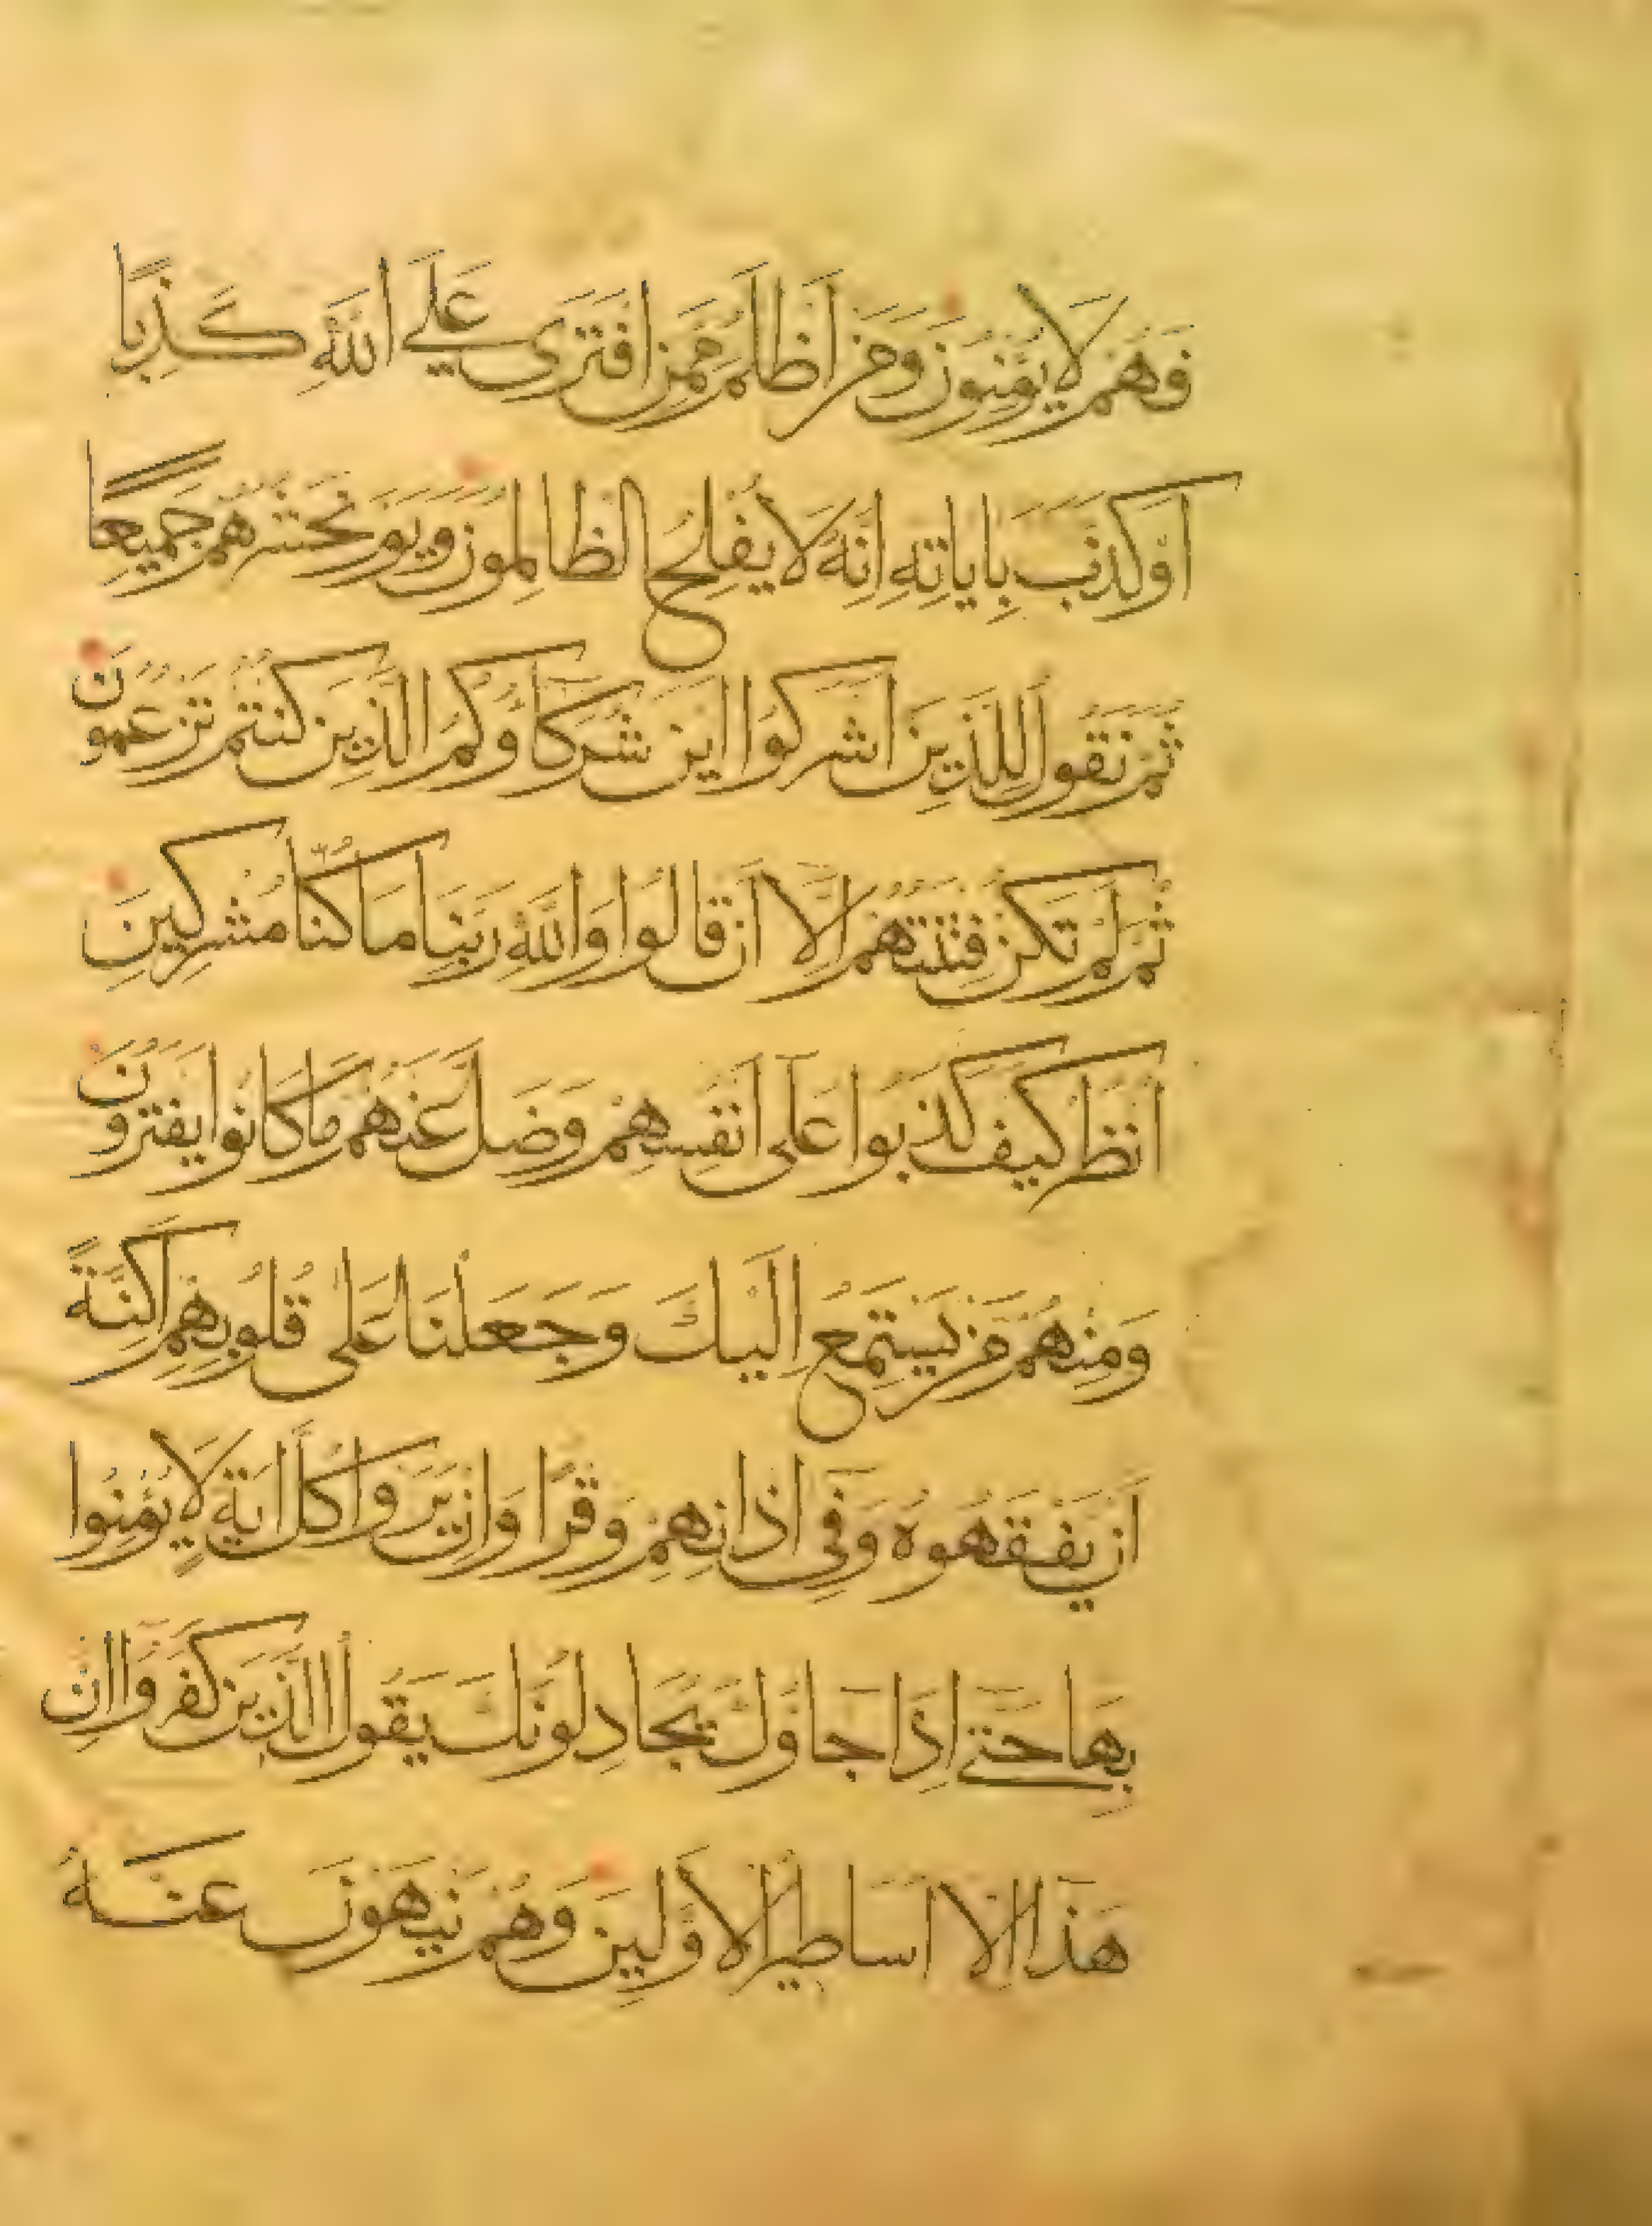 فَهُمْ لَا يُؤْمِنُونَ وَمَنْ اَظْلَمُ مِمَّنِ افْتَرَى عَلَى اللَّهِ كَذِبًا
اَوْ كَذَّبَ بِايَاتِهِ اِنَّهُ لَا يُفْلِحُ الظَّالِمُونَ وَيَوْمَ نَحْشُرُهُمْ جَمِيعًا
ثُمَّ نَقُولُ لِلَّذِينَ اَشْرَكُوا اَيْنَ شُرَكَاؤُكُمُ الَّذِينَ كُنْتُمْ تَزْعُمُونَ
ثُمَّ لَمْ تَكُنْ فِتْنَتُهُمْ اِلَّا اَنْ قَالُوا وَاللَّهِ رَبِّنَا مَا كُنَّا مُشْرِكِينَ
انْظُرْ كَيْفَ كَذَبُوا عَلَى اَنْفُسِهِمْ وَضَلَّ عَنْهُمْ مَا كَانُوا يَفْتَرُونَ
وَمِنْهُمْ مَنْ يَسْتَمِعُ اِلَيْكَ وَجَعَلْنَا عَلَى قُلُوبِهِمْ اَكِنَّةً
اَنْ يَفْقَهُوهُ وَفِي اذَانِهِمْ وَقْرًا وَاِنْ يَرَوْا كُلَّ ايَةٍ لَا يُؤْمِنُوا
بِهَا حَتَّى اِذَا جَاؤُكَ يُجَادِلُونَكَ يَقُولُ الَّذِينَ كَفَرُوا اِنْ
هَذَا اِلَّا اَسَاطِيرُ الْاَوَّلِينَ وَهُمْ يَنْهَوْنَ عَنْهُ